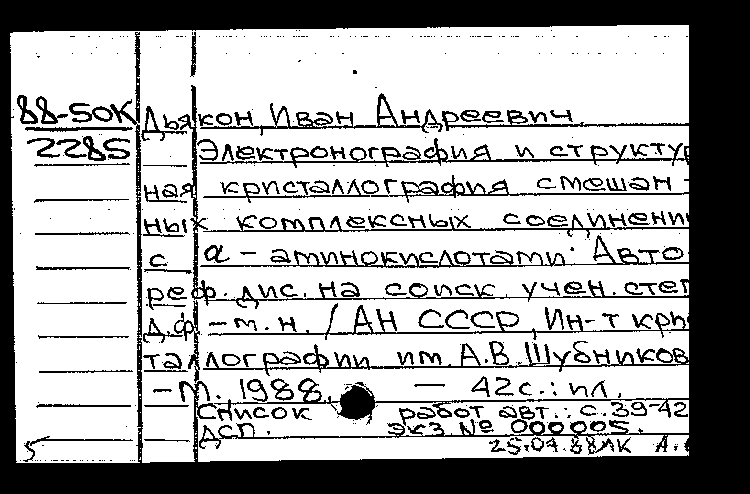 88-50К Дьякон, Иван Андреевич.
2285 Электронография и структур
ная кристаллография смешан-
ных комплексных соединени
с α-аминокислотами: Авто
реф. дис. на соиск. учен. степ
д.ф.-м.н. / АН СССР, Ин-т кри
таллографии им. А.В. Шубников
-М. 1988. - 42с.: ил.
Список работ авт.: с.39-42
ДСП. Экз. № 000005.
5 25.04.88